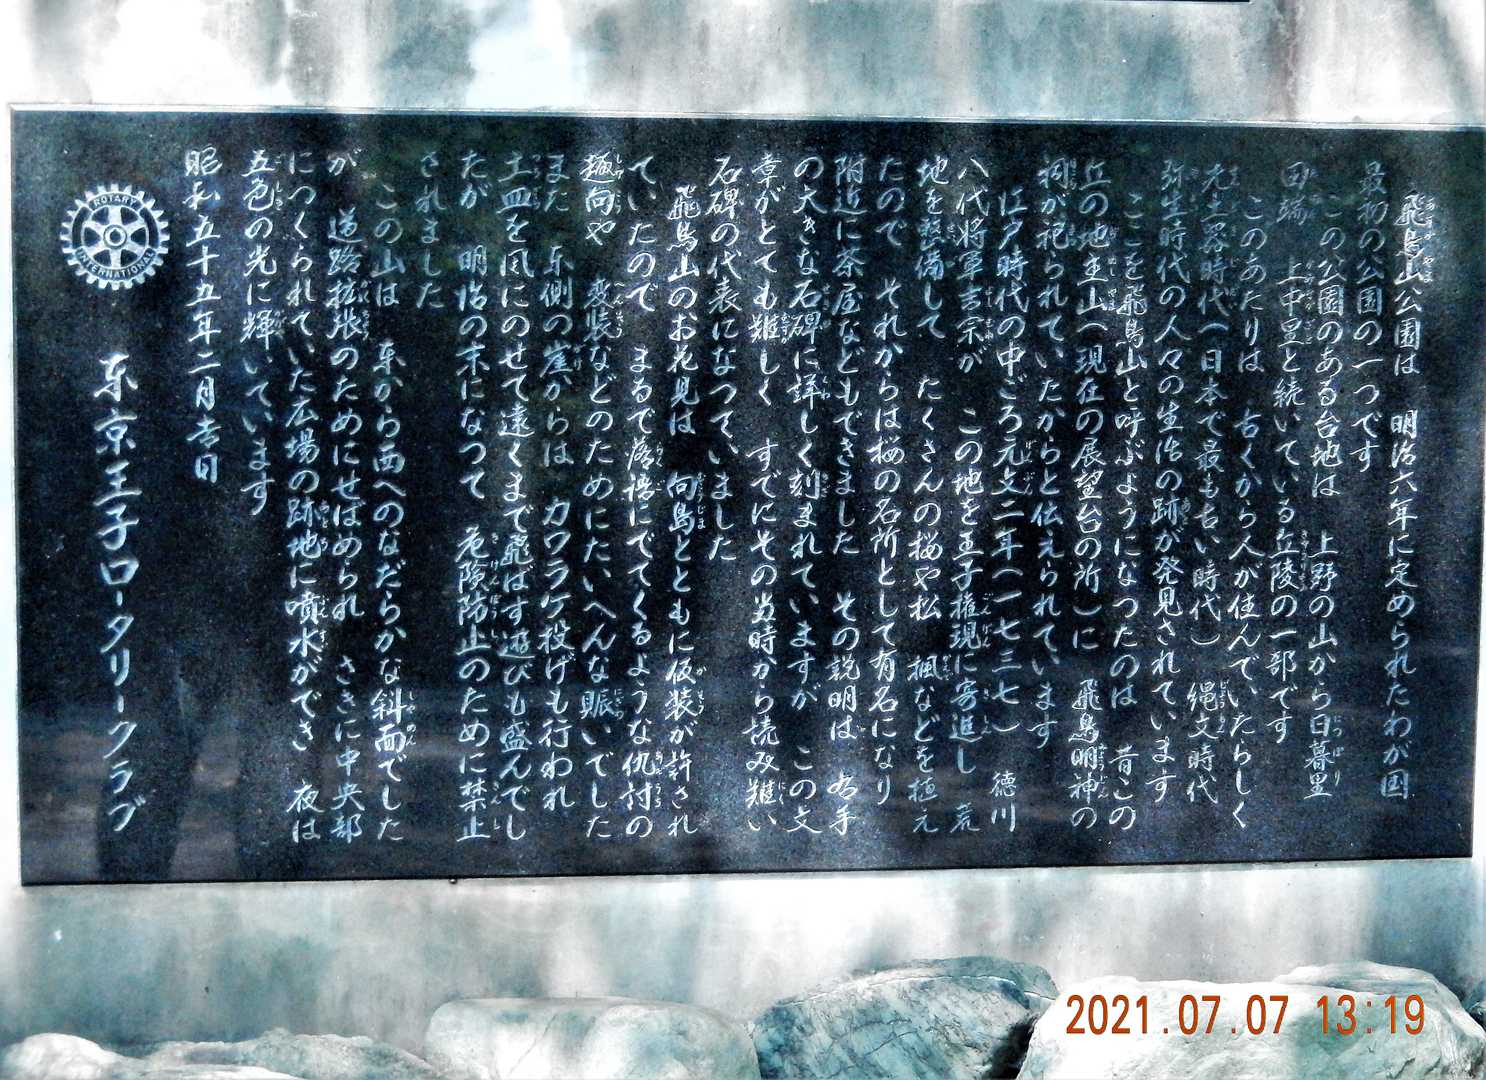 飛鳥山公園は 明治六年に定められたわが国
最初の公園の一つです
この公園のある台地は 上野の山から日暮里
田端 上中里と続いている丘陵の一部です
このあたりは 古くから人が住んでいたらしく
先土器時代(日本で最も古い時代) 縄文時代
弥生時代の人々の生活の跡が発見されています
ここを飛鳥山と呼ぶようになったのは 昔この
丘の地主山(現在の展望台の所)に 飛鳥明神の
祠が祀られていたからと伝えられています
江戸時代の中ごろ元文二年(一七三七) 徳川
八代将軍吉宗が この地を王子権現に寄進し 荒
地を整備して たくさんの桜や松 楓などを植え
たので それからは桜の名所として有名になり
附近に茶屋などもできました その説明は 右手
の大きな石碑に詳しく刻まれていますが この文
章がとても難しく すでにその当時から読み難い
石碑の代表になっていました
飛鳥山のお花見は 向島とともに仮装が許され
ていたので まるで落語にでてくるような仇討の
趣向や 変装などのためにたいへんな賑いでした
また 東側の崖からは カワラケ投げも行われ
土皿を風にのせて遠くまで飛ばす遊びも盛んでし
たが 明治の末になって 危険防止のために禁止
されました
この山は 東から西へのなだらかな斜面でした
が 道路拡張のためにせばめられ さきに中央部
につくられていた広場の跡地に噴水ができ 夜は
五色の光に輝いています
昭和五十五年二月吉日
東京王子ロータリークラブ
ROTARY
INTERNATIONAL
2021.07.07 13:19